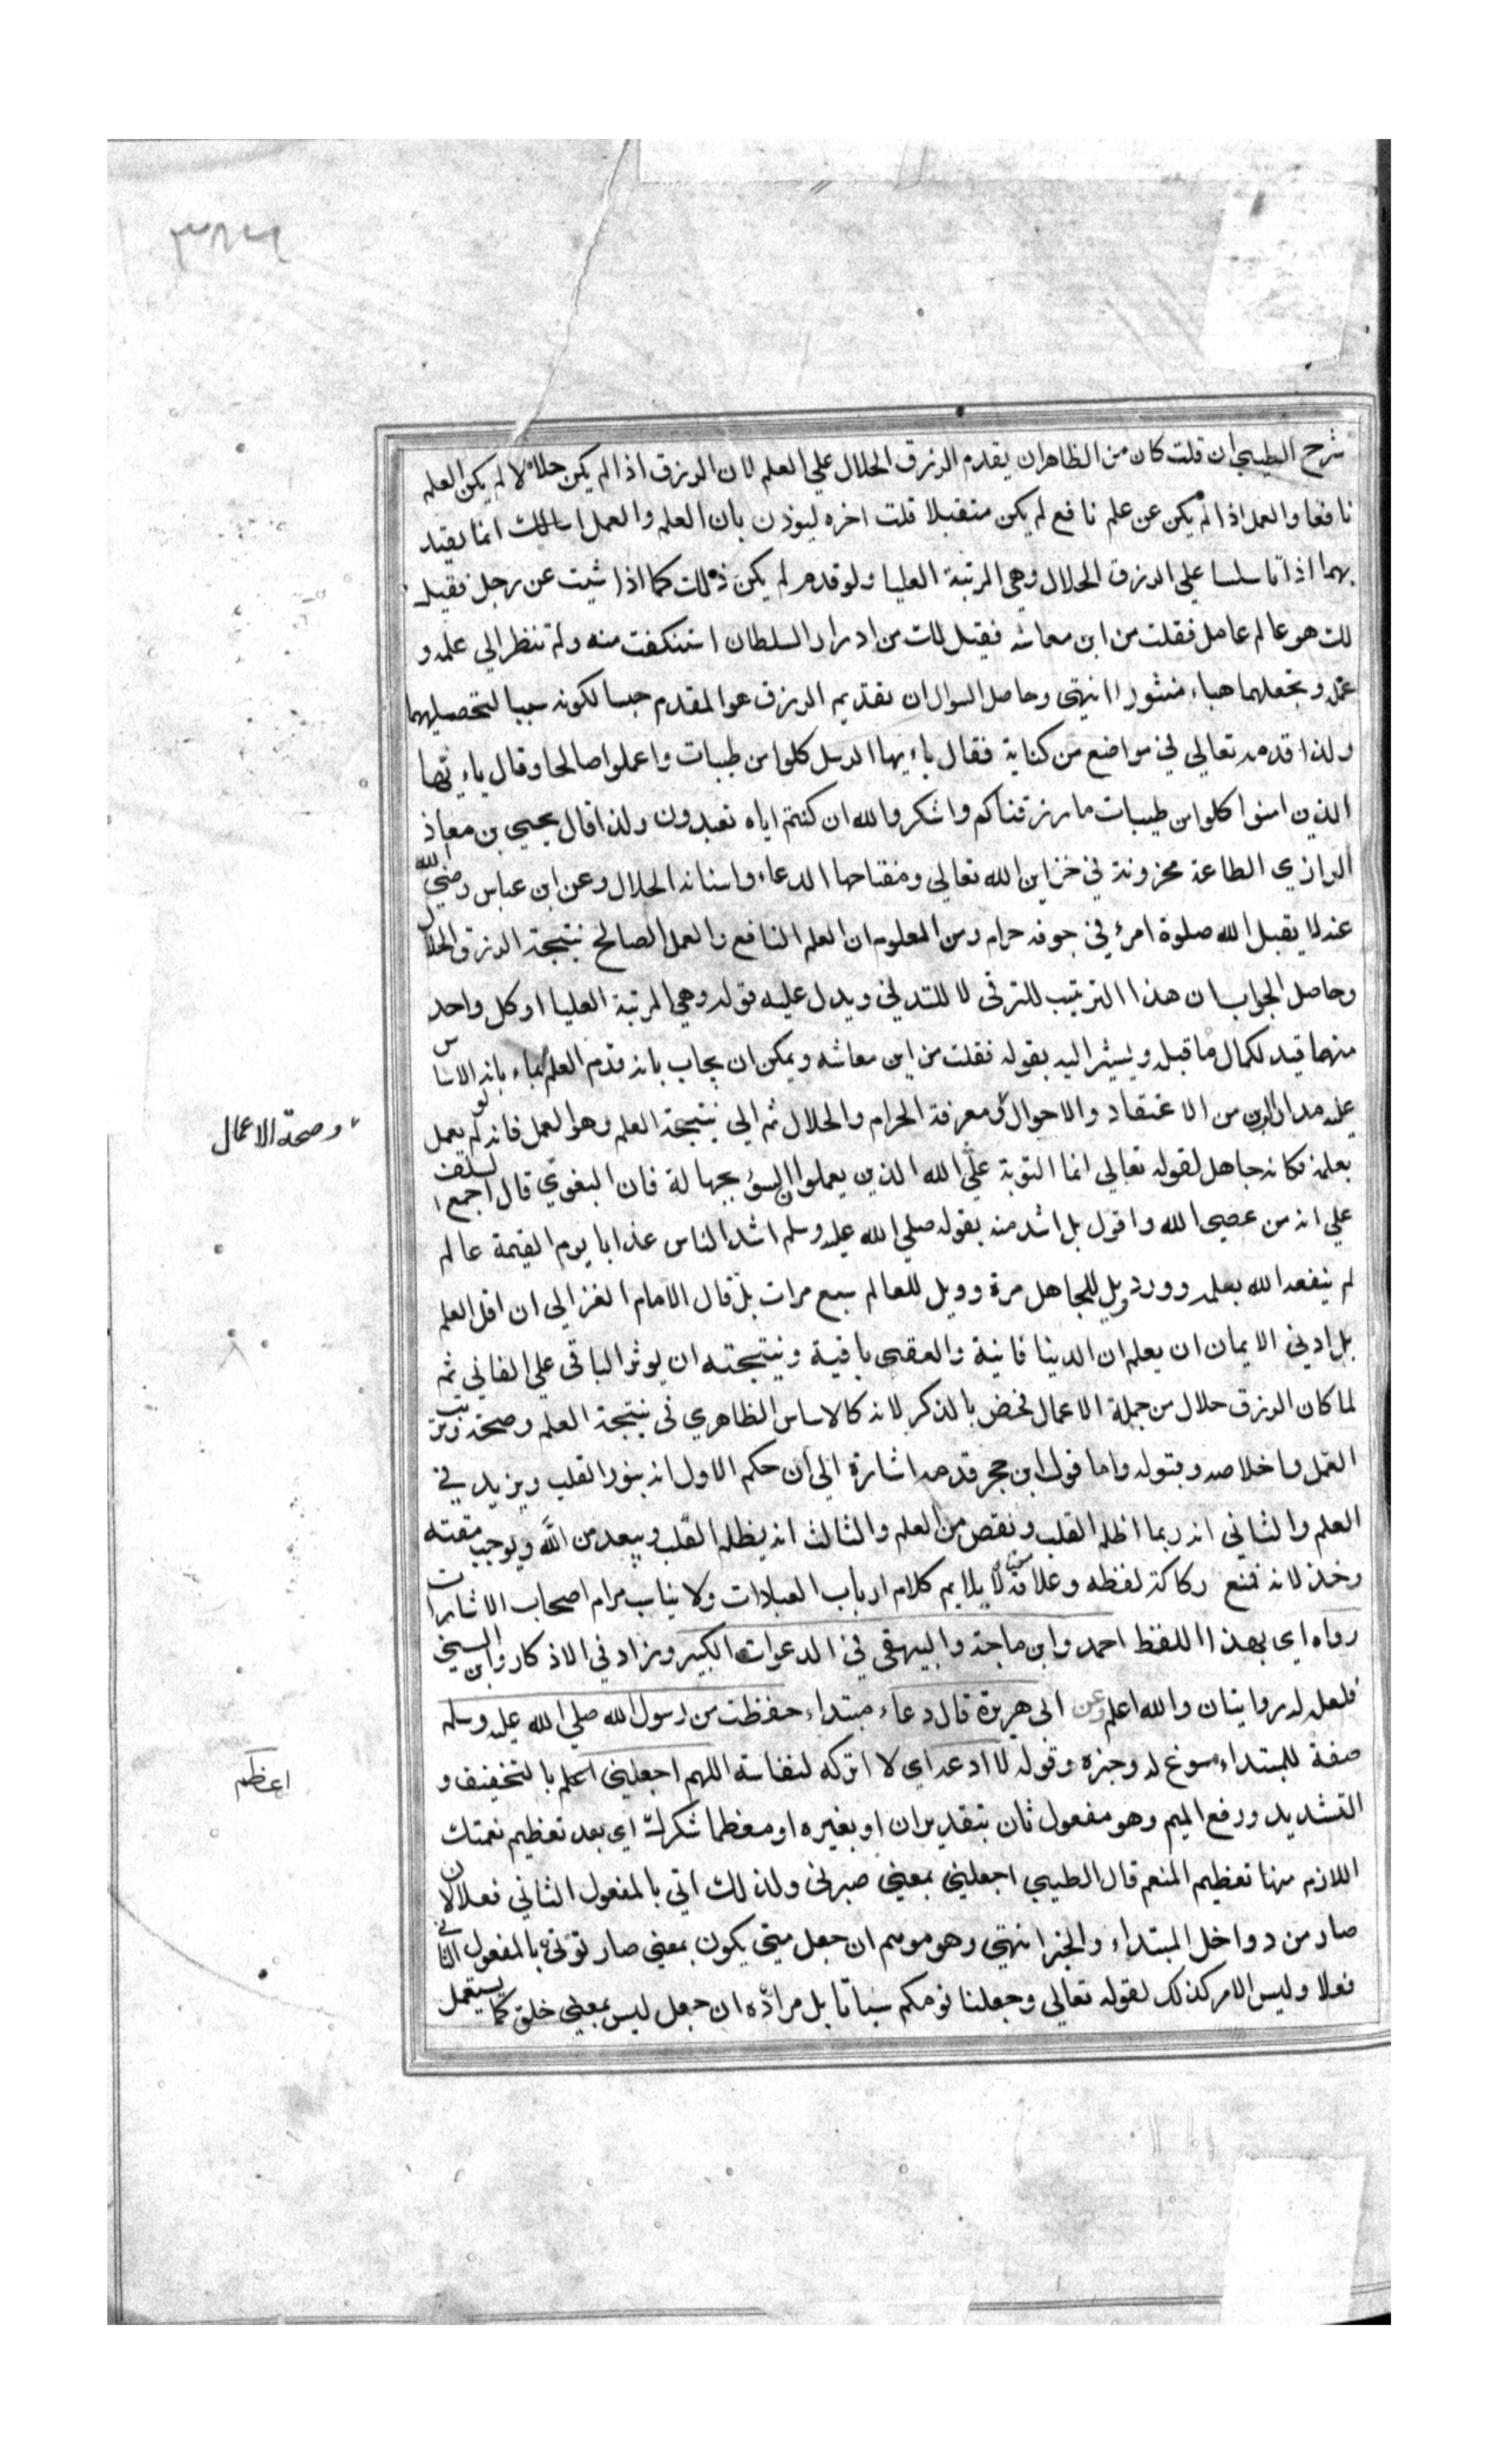 شرح الطيبي ان قلت كان من الظاهر ان يقدم الرزق الحلال علي العلم لان الرزق اذا لم يكن حلالا لم يكن العلم
نافعا والعمل اذا لم يكن عن علم نافع لم يكن متقبلا قلت اخره ليوذن بان العلم والعمل انما يعتد
بهما اذا تاسسا علي الرزق الحلال وهي المرتبة العليا ولو قدم لم يكن ذلك كما اذا سئلت عن رجل فقيل
لك هو عالم عامل فقلت من اين معاشه فقيل لك من ادرار السلطان استنكفت منه ولم تنظر الي علمه و
عمله وتجعلهما هباء منثورا انتهى وحاصل السوال ان تقديم الرزق هو المقدم حسا لكونه سببا لتحصيلهما
ولذا قدمه تعالي في مواضع من كتابه فقال ياءيها الرسل كلوا من طيبات واعملوا صالحا وقال ياءيها
الذين امنوا كلوا من طيبات ما رزقناكم واشكروا لله ان كنتم اياه تعبدون ولذا قال يحيي بن معاذ
الرازي الطاعة مخزونة في خزاين الله تعالي ومفتاحها الدعاء واسنانه الحلال وعن ابن عباس رضي الله
عنه لا يقبل الله صلوة امرئ في جوفه حرام ومن المعلوم ان العلم النافع والعمل الصالح نتيجة الرزق الحلال
وحاصل الجواب ان هذا الترتيب للترقى لا للتدلي ويدل عليه قوله وهي المرتبة العليا او كل واحد
منهما قيد لكمال ما قبله ويشير اليه بقوله فقلت من اين معاشه ويمكن ان يجاب بانه قدم العلم ايماء بانه الاساس
عليه مدار الدين من الاعتقاد والاحوال في معرفة الحرام والحلال ثم الي نتيجة العلم وهو العمل فانه لو لم يعمل
وصحة الاعمال
بعلمه فكانه جاهل لقوله تعالي انما التوبة علي الله الذين يعملوا السوء بجهالة فان البغوي قال اجمع السلف
علي انه من عصي الله واقول بل اشد منه بقوله صلي الله عليه وسلم اشد الناس عذابا يوم القيمة عالم
لم ينفعه الله بعلمه وورد ويل للجاهل مرة وويل للعالم سبع مرات بل قال الامام الغزالي ان اقل العلم
بل ادني الايمان ان يعلم ان الدينا فانية والعقبى باقية ونتيجته ان يوثر الباقي علي الفاني ثم
لما كان الرزق حلال من جملة الاعمال فخص بالذكر لانه كالاساس الظاهري في نتيجة العلم وصحته وترتب
العمل واخلاصه وقبوله واما قول ابن حجر قدمه اشارة الي ان حكم الاول انه ينور القلب ويزيد في
العلم والثاني انه ربما اظلم القلب ونقص من العلم والثالث انه يظلم القلب ويبعد من الله ويوجب مقته
لانه مع ركاكة لفظه لا يلايم كلام ارباب العبادات ولا يناسب مرام اصحاب الاشارات
رواه اي بهذا اللفظ احمد وابن ماجة والبيهقي في الدعوات الكبير وزاد في الاذكار وابن السني
فلعل له روايتان والله اعلم وعن ابي هريرة قال دعاء مبتداء حفظت من رسول الله صلي الله عليه وسلم
صفة للمبتداء مسوغ له وخبره وقوله لا ادعه اي لا اتركه لنفاسته اللهم اجعلني اعظم بالتخفيف و
اعظم
التشديد ورفع الميم وهو مفعول ثان بتقدير ان او بغيره او معظما شكرك اي بعد تعظيم نعمتك
اللازم منها تعظيم المنعم قال الطيبي اجعلني بمعني صيرني ولذلك اتي بالمفعول الثاني فعلا لان
صار من دواخل المبتداء والخبر انتهي وهو موهم ان جعل متي يكون بمعني صار توتي بالمفعول الثاني
فعلا وليس الامر كذلك لقوله تعالي وجعلنا نومكم سباتا بل مراده ان جعل ليس بمعني خلق كما يستعمل